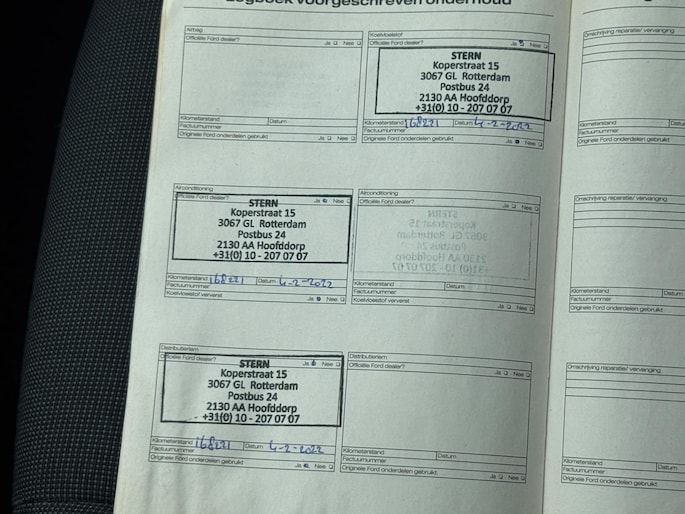 Logboek voorgeschreven onderhoud
Airbag
Officiële Ford dealer? Ja Nee
Kilometerstand Datum
Factuurnummer
Originele Ford onderdelen gebruikt Ja Nee
Koelvloeistof
Officiële Ford dealer? Ja Nee
STERN
Koperstraat 15
3067 GL Rotterdam
Postbus 24
2130 AA Hoofddorp
+31(0) 10 - 207 07 07
Kilometerstand 168221 Datum 4-2-2022
Factuurnummer
Originele Ford onderdelen gebruikt Ja Nee
Airconditioning
Officiële Ford dealer? Ja Nee
STERN
Koperstraat 15
3067 GL Rotterdam
Postbus 24
2130 AA Hoofddorp
+31(0) 10 - 207 07 07
Kilometerstand 168221 Datum 4-2-2022
Factuurnummer
Koelvloeistof ververst Ja Nee
Airconditioning
Officiële Ford dealer? Ja Nee
Kilometerstand Datum
Factuurnummer
Koelvloeistof ververst Ja Nee
Distributieriem
Officiële Ford dealer? Ja Nee
STERN
Koperstraat 15
3067 GL Rotterdam
Postbus 24
2130 AA Hoofddorp
+31(0) 10 - 207 07 07
Kilometerstand 168221 Datum 4-2-2022
Factuurnummer
Originele Ford onderdelen gebruikt Ja Nee
Distributieriem
Officiële Ford dealer? Ja Nee
Kilometerstand Datum
Factuurnummer
Originele Ford onderdelen gebruikt Ja Nee
Omschrijving reparatie/ vervanging
Kilometerstand
Factuurnummer
Originele Ford onderdelen
Omschrijving reparatie/ vervanging
Kilometerstand
Factuurnummer
Originele Ford onderdelen
Omschrijving reparatie/ vervanging
Kilometerstand
Factuurnummer
Originele Ford onderdelen g